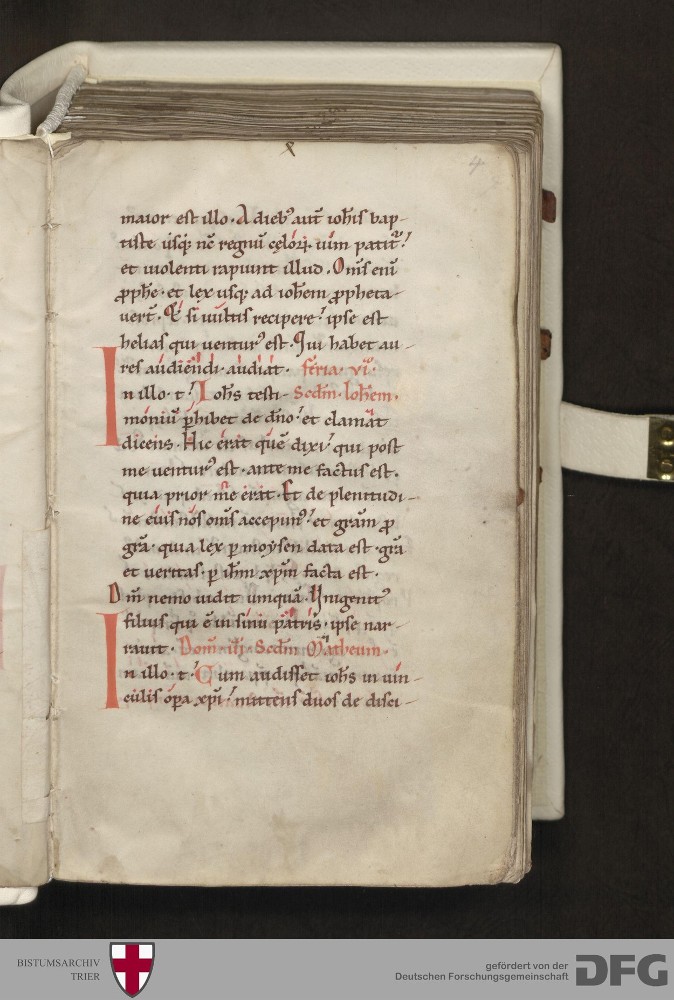 4
maior est illo. A dieb⁹ aut̄ ioh̄is bap-
tiste usq; nc̄ regnū cęloꝝ uim patit᷑.
et uiolenti rapiunt illud. Om̄s eni
ꝓph̄e. et lex usq; ad ioh̄em ꝓpheta-
uer̄t. Et si uultis recipere. ipse est
helias qui uentur⁹ est. Qui habet au-
res audiendi. audiat. feria. vi.
In illo. t. Ioh̄s testi- Scd̄m. Ioh̄em.
moniū ꝑhibet de dn̄o. et clamat
dicens. Hic erat quē dixi. qui post
me uentur⁹ est. ante me factus est.
quia prior me erat. Et de plenitudi-
ne eius nos om̄s accepim⁹. et gram̄ ꝓ
gr̄a. quia lex ꝑ moysen data est. gr̄a
et ueritas. ꝑ ih̄m xp̄m facta est.
Dm̄ nemo uidit umquā. Vnigenit⁹
filius qui ē in sinu patris. ipse nar-
rauit. Dom̄. iij. Scd̄m Matheum.
In illo. t. Cum audisset ioh̄s in uin-
culis oꝑa xp̄i. mittens duos de disci-
BISTUMSARCHIV
TRIER
gefördert von der
Deutschen Forschungsgemeinschaft
DFG